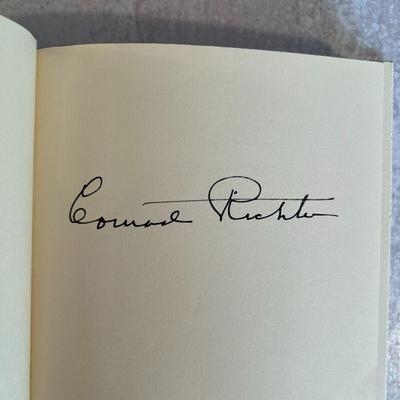 Conrad Richter